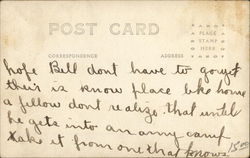 POST CARD
PLACE
STAMP
HERE
CORRESPONDENCE
ADDRESS
hope Bill dont have to go yet
their is know place like home
a fellow dont realize that until
he gets into an army camp
take it from one that knows
1500